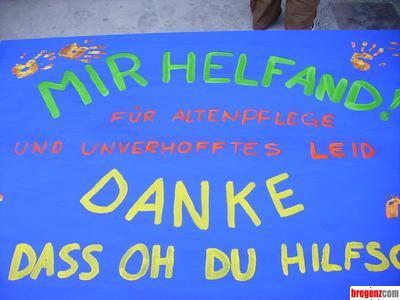 MIR HELFAND!
FÜR ALTENPFLEGE
UND UNVERHOFFTES LEID
DANKE
DASS OH DU HILFSC
bregenzcom